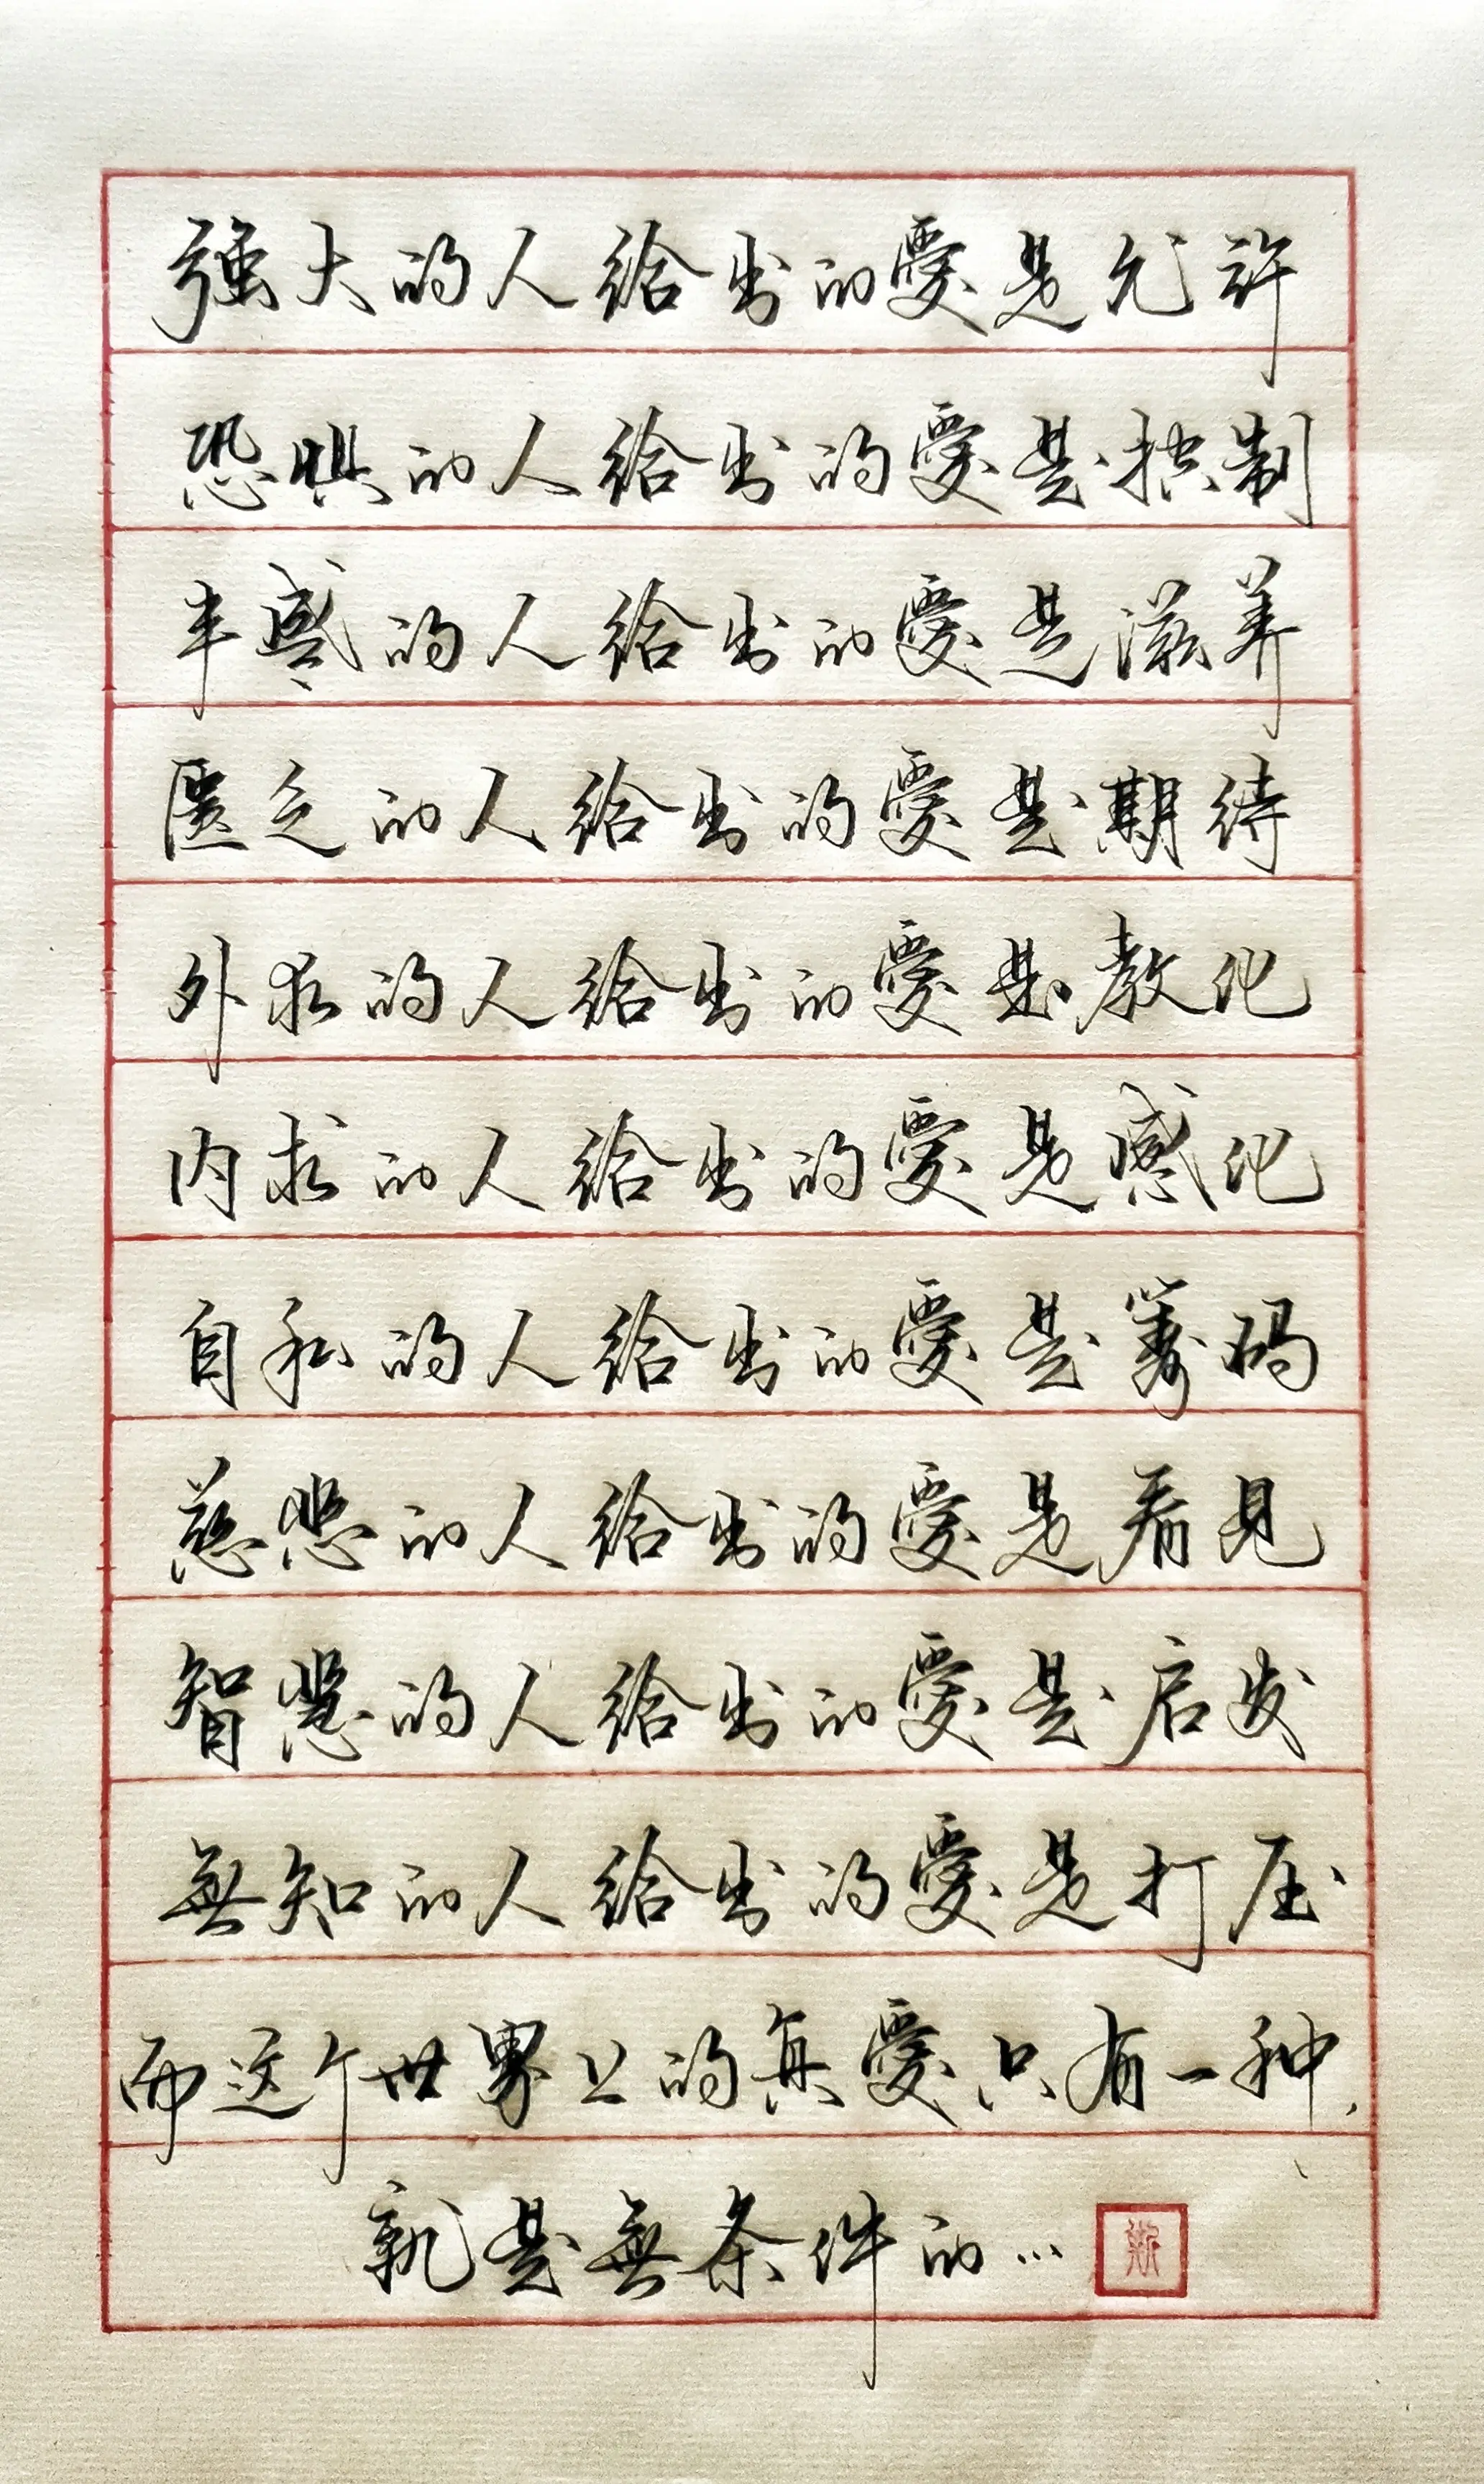 強大的人给出的愛是允许
恐惧的人给出的愛是控制
丰盛的人给出的愛是滋养
匮乏的人给出的愛是期待
外求的人给出的愛是教化
内求的人给出的愛是感化
自私的人给出的愛是筹码
慈悲的人给出的愛是看见
智慧的人给出的愛是启发
無知的人给出的愛是打压
而这个世界上的真愛只有一种，
就是無条件的…